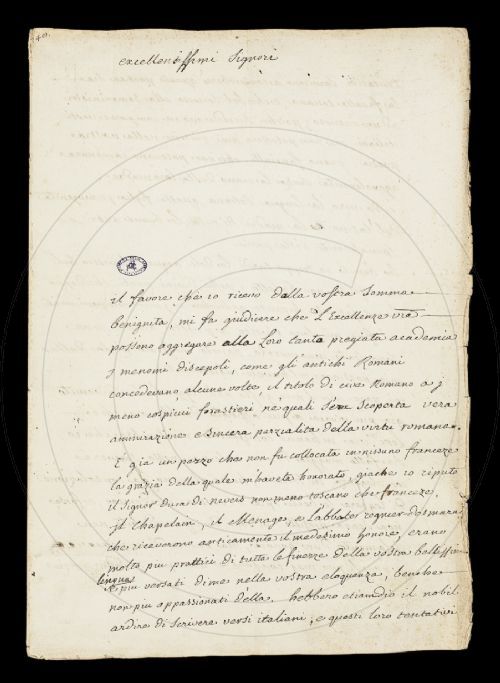 excellentissimi Signori
il favore che io ricevo dalla vostra somma
benignita, mi fa giudicare che L'Excellenze vre
possono aggregare alla Loro tanta pregiata academia
i menomi discepoli, come gli antichi Romani
concedevano, alcune volte, il titolo di cive Romano a i
meno cospicui forastieri ne quali s'era scoperta vera
ammirazione e sincera parzialita della virtu romana.
E gia un pezzo che non fu collocata in nissuno franceze
la grazia della quale m'havete honorato, giache io reputo
il Signor Dura di neveis non meno toscano che franceze,
il Chapelain, il Menage, e l'abbate regnier desmarais
che ricaverono anticamente il medesimo honore, erano
molto piu prattici di tutte le finezze della vostra bellissima
lingua
e piu versati di me nella vostra eloquenza, benche
non piu appassionati della. hebbero etiamdio il nobil
ardire di scrivere versi italiani, e questi loro tentativi